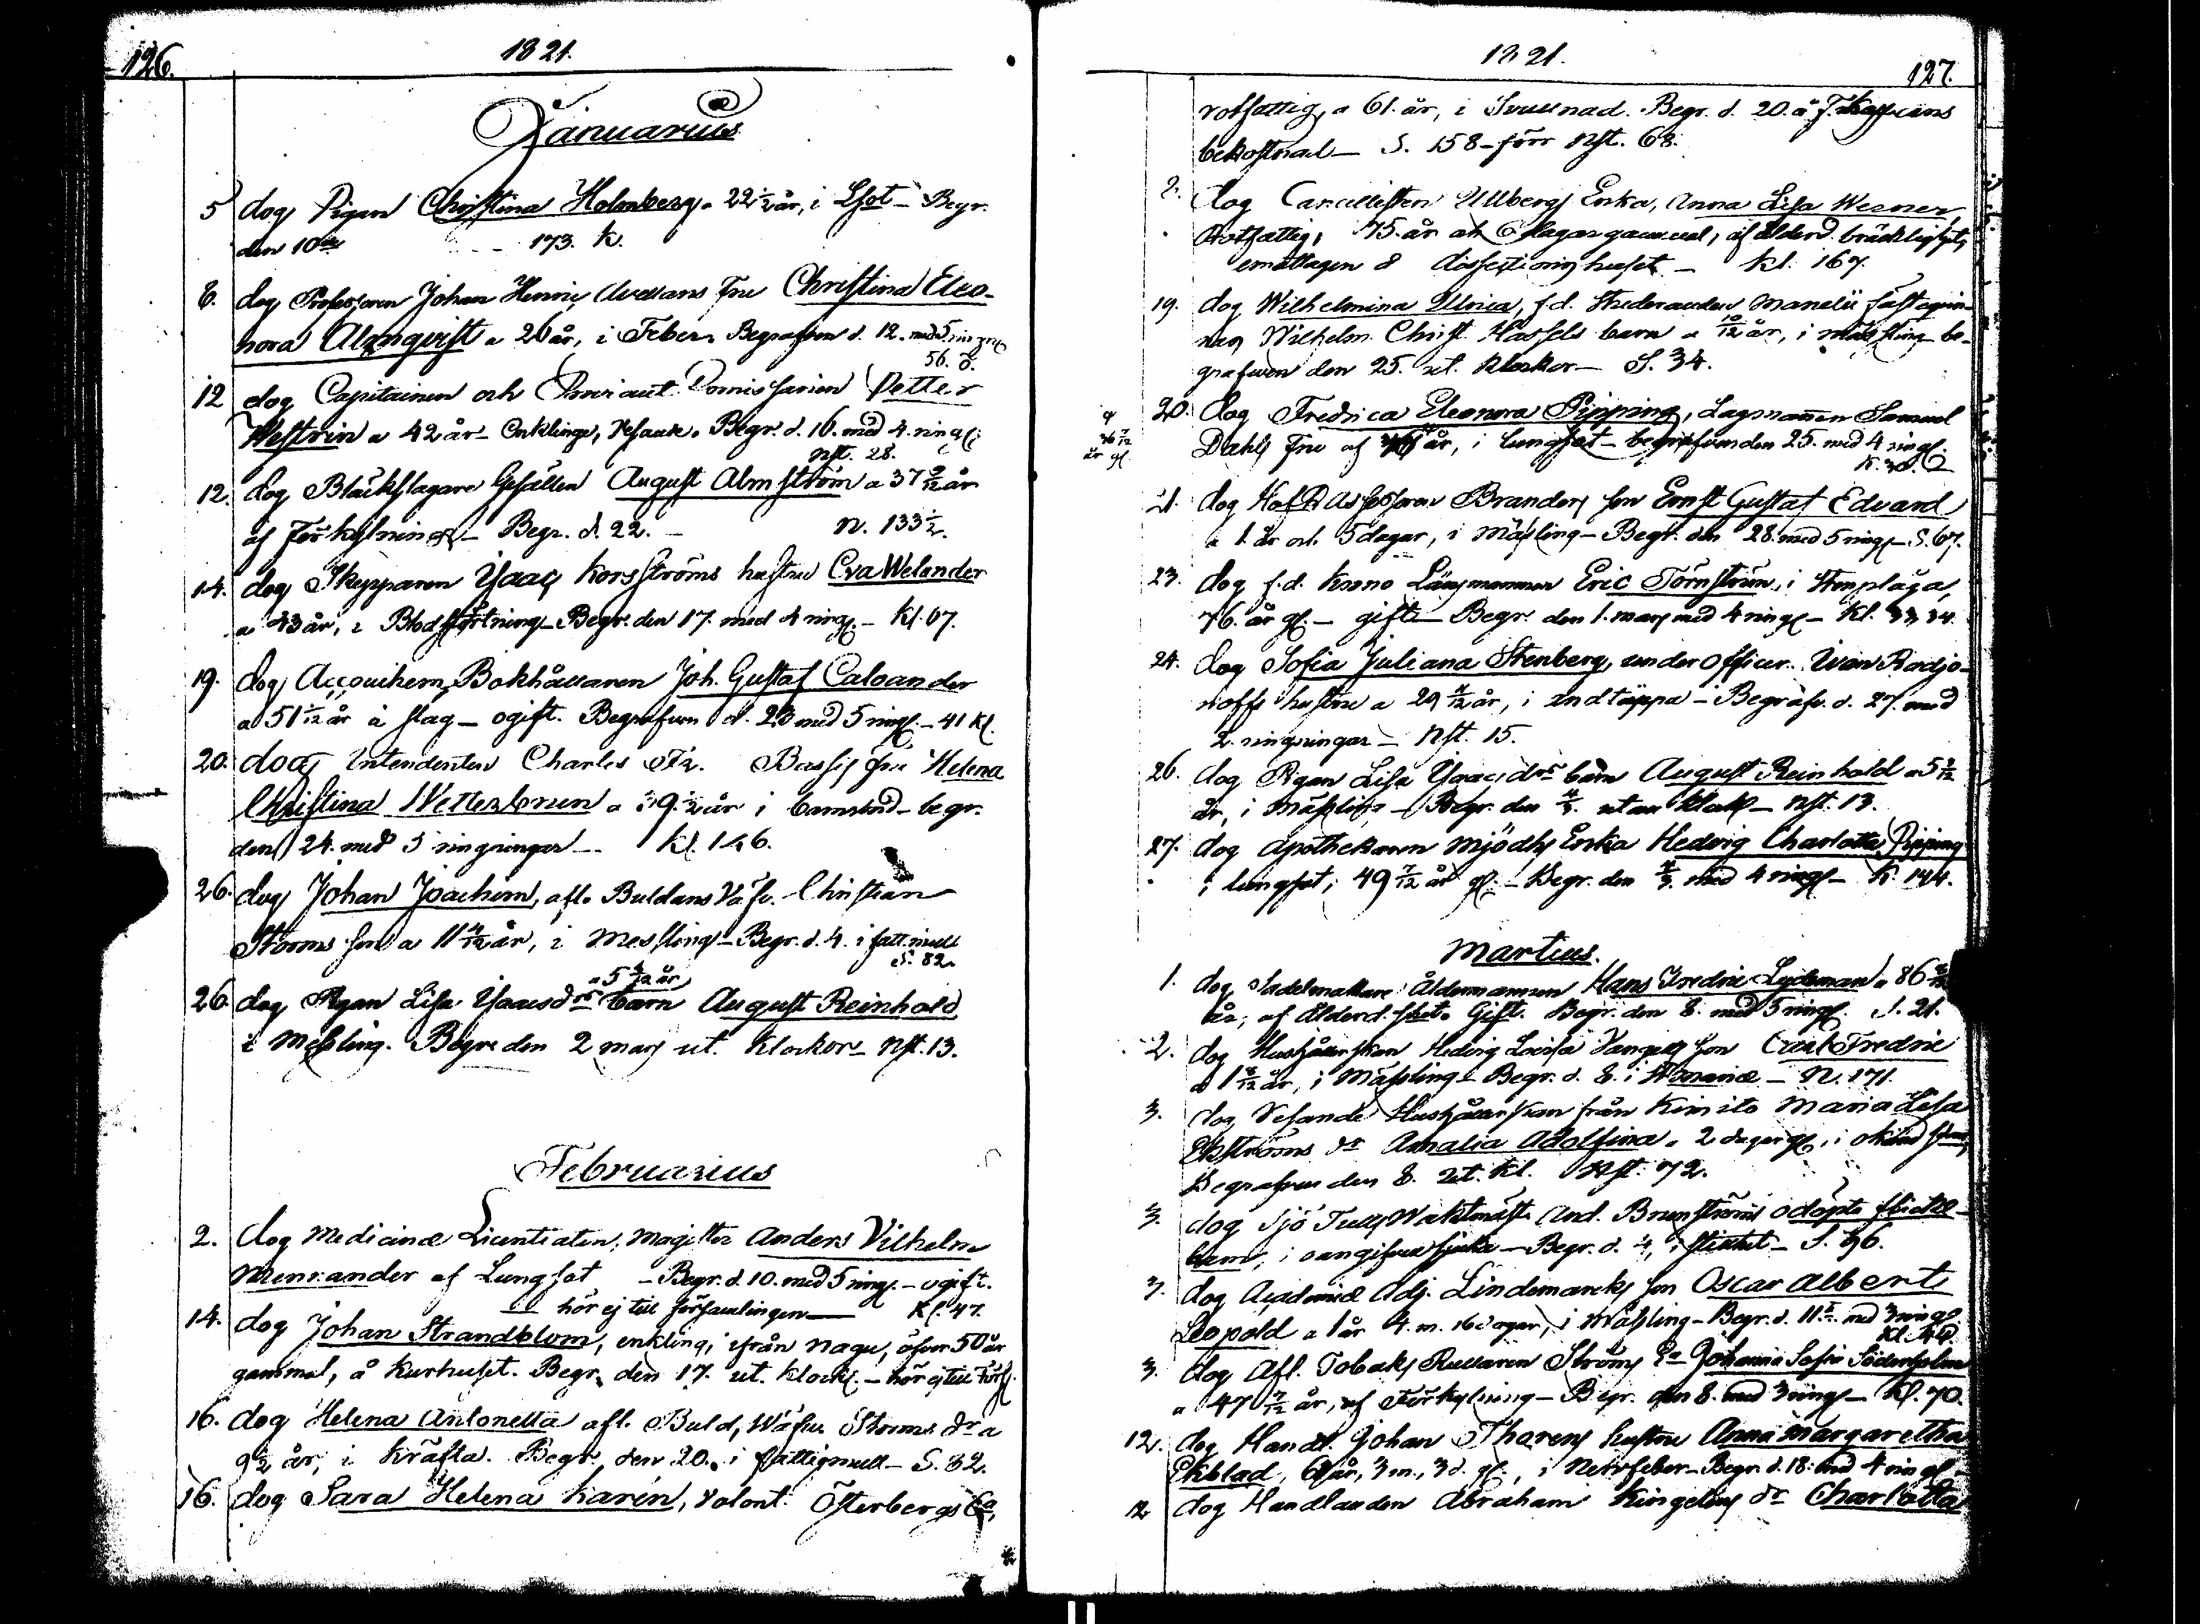 126.
1821.
Januarius
5 dog Pigan Christina Holmberg a 22 1/2 år, i Lsot - Begr.
den 10de 173. K.
6. dog Professoren Johan Henric Avellans Fru Christina Eleo-
nora Almqvist a 26 år, i Feber. Begrafven d. 12. med 5 ringn.
56.
12 dog Capitainen och Proviant Commissarien Petter
Westrin a 42 år - Enkling, Begr. d. 16. med 4. ringn.
Nst. 28.
12. dog Bläckslagare Gesällen August Almström a 37 9/12 år
af Förkylning - Begr. d. 22. - N. 133 1/2.
14. dog Skepparen Isaac Korsströms hustru Eva Welander
a 43 år, i Blodstörtning - Begr. den 17. med 4 ring. - Kl. 67.
19. dog Bokhållaren Joh. Gustaf Caloander
a 51 år å slag - ogift. Begrafven d. 23 med 5 ring. - 41 Kl.
20. dog Intendenten Charles Bassis fru Helena
Christina Wetterbrun a 39 1/2 år i barnsbörd - begr.
den 24. med 5 ringningar - Kl. 146.
26. dog Johan Joachim, afl. Buldans Väfv. Christian
Storms son a 11 år, i Messling - Begr. d. 4. i fatt.mull
S. 82.
a 5 4/12 år
26. dog Pigan Lisa Isacsdrs barn August Reinhold
i Messling. Begr. den 2 mars ut. klockor - Nst. 13.
Februarius
2. dog Medicinæ Licentiaten, Magister Anders Vilhelm
Menrander af Lungsot - Begr. d. 10. med 5 ring. - ogift.
- hör ej till församlingen - Kl. 47.
14. dog Johan Strandblom, enkling, ifrån Nagu, öfver 50 år
gammal, å Kurhuset. Begr. den 17. ut. klock. - hör ej till förs.
16. dog Helena Antonetta afl. Buld. Wäfv. Storms dr a
9 1/2 år, i Kräfta. Begr. den 20. i fattigmull - S. 82.
16. dog Sara Helena Karén, Volont. Österbergs Ea,
1821.
127.
rotfattig, a 61. år, i Svullnad. Begr. d. 20. å
bekostnad - S. 158 - förr Nst. 68.
dog Cancellisten Ullbergs Enka, Anna Lisa Wesner,
Rotfattig, 75. år gammal, af ålderd. bräcklighet,
emottagen å dissectionshuset - Kl. 167.
19. dog Wilhelmina Ulrica, f.d. Studeranden Manelii fästeqvin-
nas Wilhelm. Christ. Hassels barn a 10/12 år, i mässling be-
grafven den 25. ut. klockor - S. 34.
20. dog Fredrica Eleonora Pipping, Lagmannen Samuel
Dahls Fru af år, i lungsot - begrafven den 25. med 4 ring.
21. dog HofR Assessoren Branders son Ernst Gustaf Edvard
a 1. år och 5 dagar, i Mässling - Begr. den 28. med 5 ring. - S. 67.
23. dog f.d. Krono Länsmannen Eric Törnström, i Stenplåga,
76. år gl. - gift - Begr. den 1. mars med 4 ring. - Kl. 34.
24. dog Sofia Juliana Stenberg, underofficer. Ivan Rodjo-
noffs hustru a 29 år, i andtäppa - Begrafv. d. 27. med
2. ringningar - Nst. 15.
26. dog Pigan Lisa Isacsdrs barn August Reinhold a 5
år, i Mässling - Begr. den 2/3. utan klock. - Nst. 13.
27. dog Apothekaren Mjödhs Enka Hedvig Charlotta Pipping
i lungsot, 49 7/12 år gl. - Begr. den med 4 ring. - K. 144.
Martius.
1. dog Sadelmakare Åldermannen Hans Fredric Lydeman a 86
år, af Ålderd. Gift. Begr. den 8. med 5 ring. S. 21.
2. dog Hushållerskan Hedvig Lovisa son Carl Fredric
a 1 år, i Mässling - Begr. d. 8. i - N. 171.
3. dog Hushållerskan från Kimito Maria Lisa
Ekströms dr Amalia Adolfina a 2 dagar gl., i okänd
Begrafven den 8. ut. Kl. Nst. 72.
3. dog Sjö Tulls Waktmäst. And. Brunströms odöpte flicke-
barn, i oangifven sjuka - Begr. d. 4, i - S. 96.
3. dog Academiæ Adj. Lindemarcks son Oscar Albert
Leopold a 1 år 4. m. 16 dagar, i Mässling - Begr. d. 11 med 3 ring.
3. dog Afl. Tobaks Rullaren Ströms Ea Johanna Sofia Söderholm
a 47 7/12 år, af Förkylning - Begr. den 8. med 3 ring. - Kl. 70.
12. dog Handl. Johan Thorens hustru Anna Margaretha
Ekblad, år, 3 m., 3 d. gl., i Nervfeber - Begr. d. 18. med 4 ring. -
12 dog Handlanden Abraham Kingelins dr Charlotta